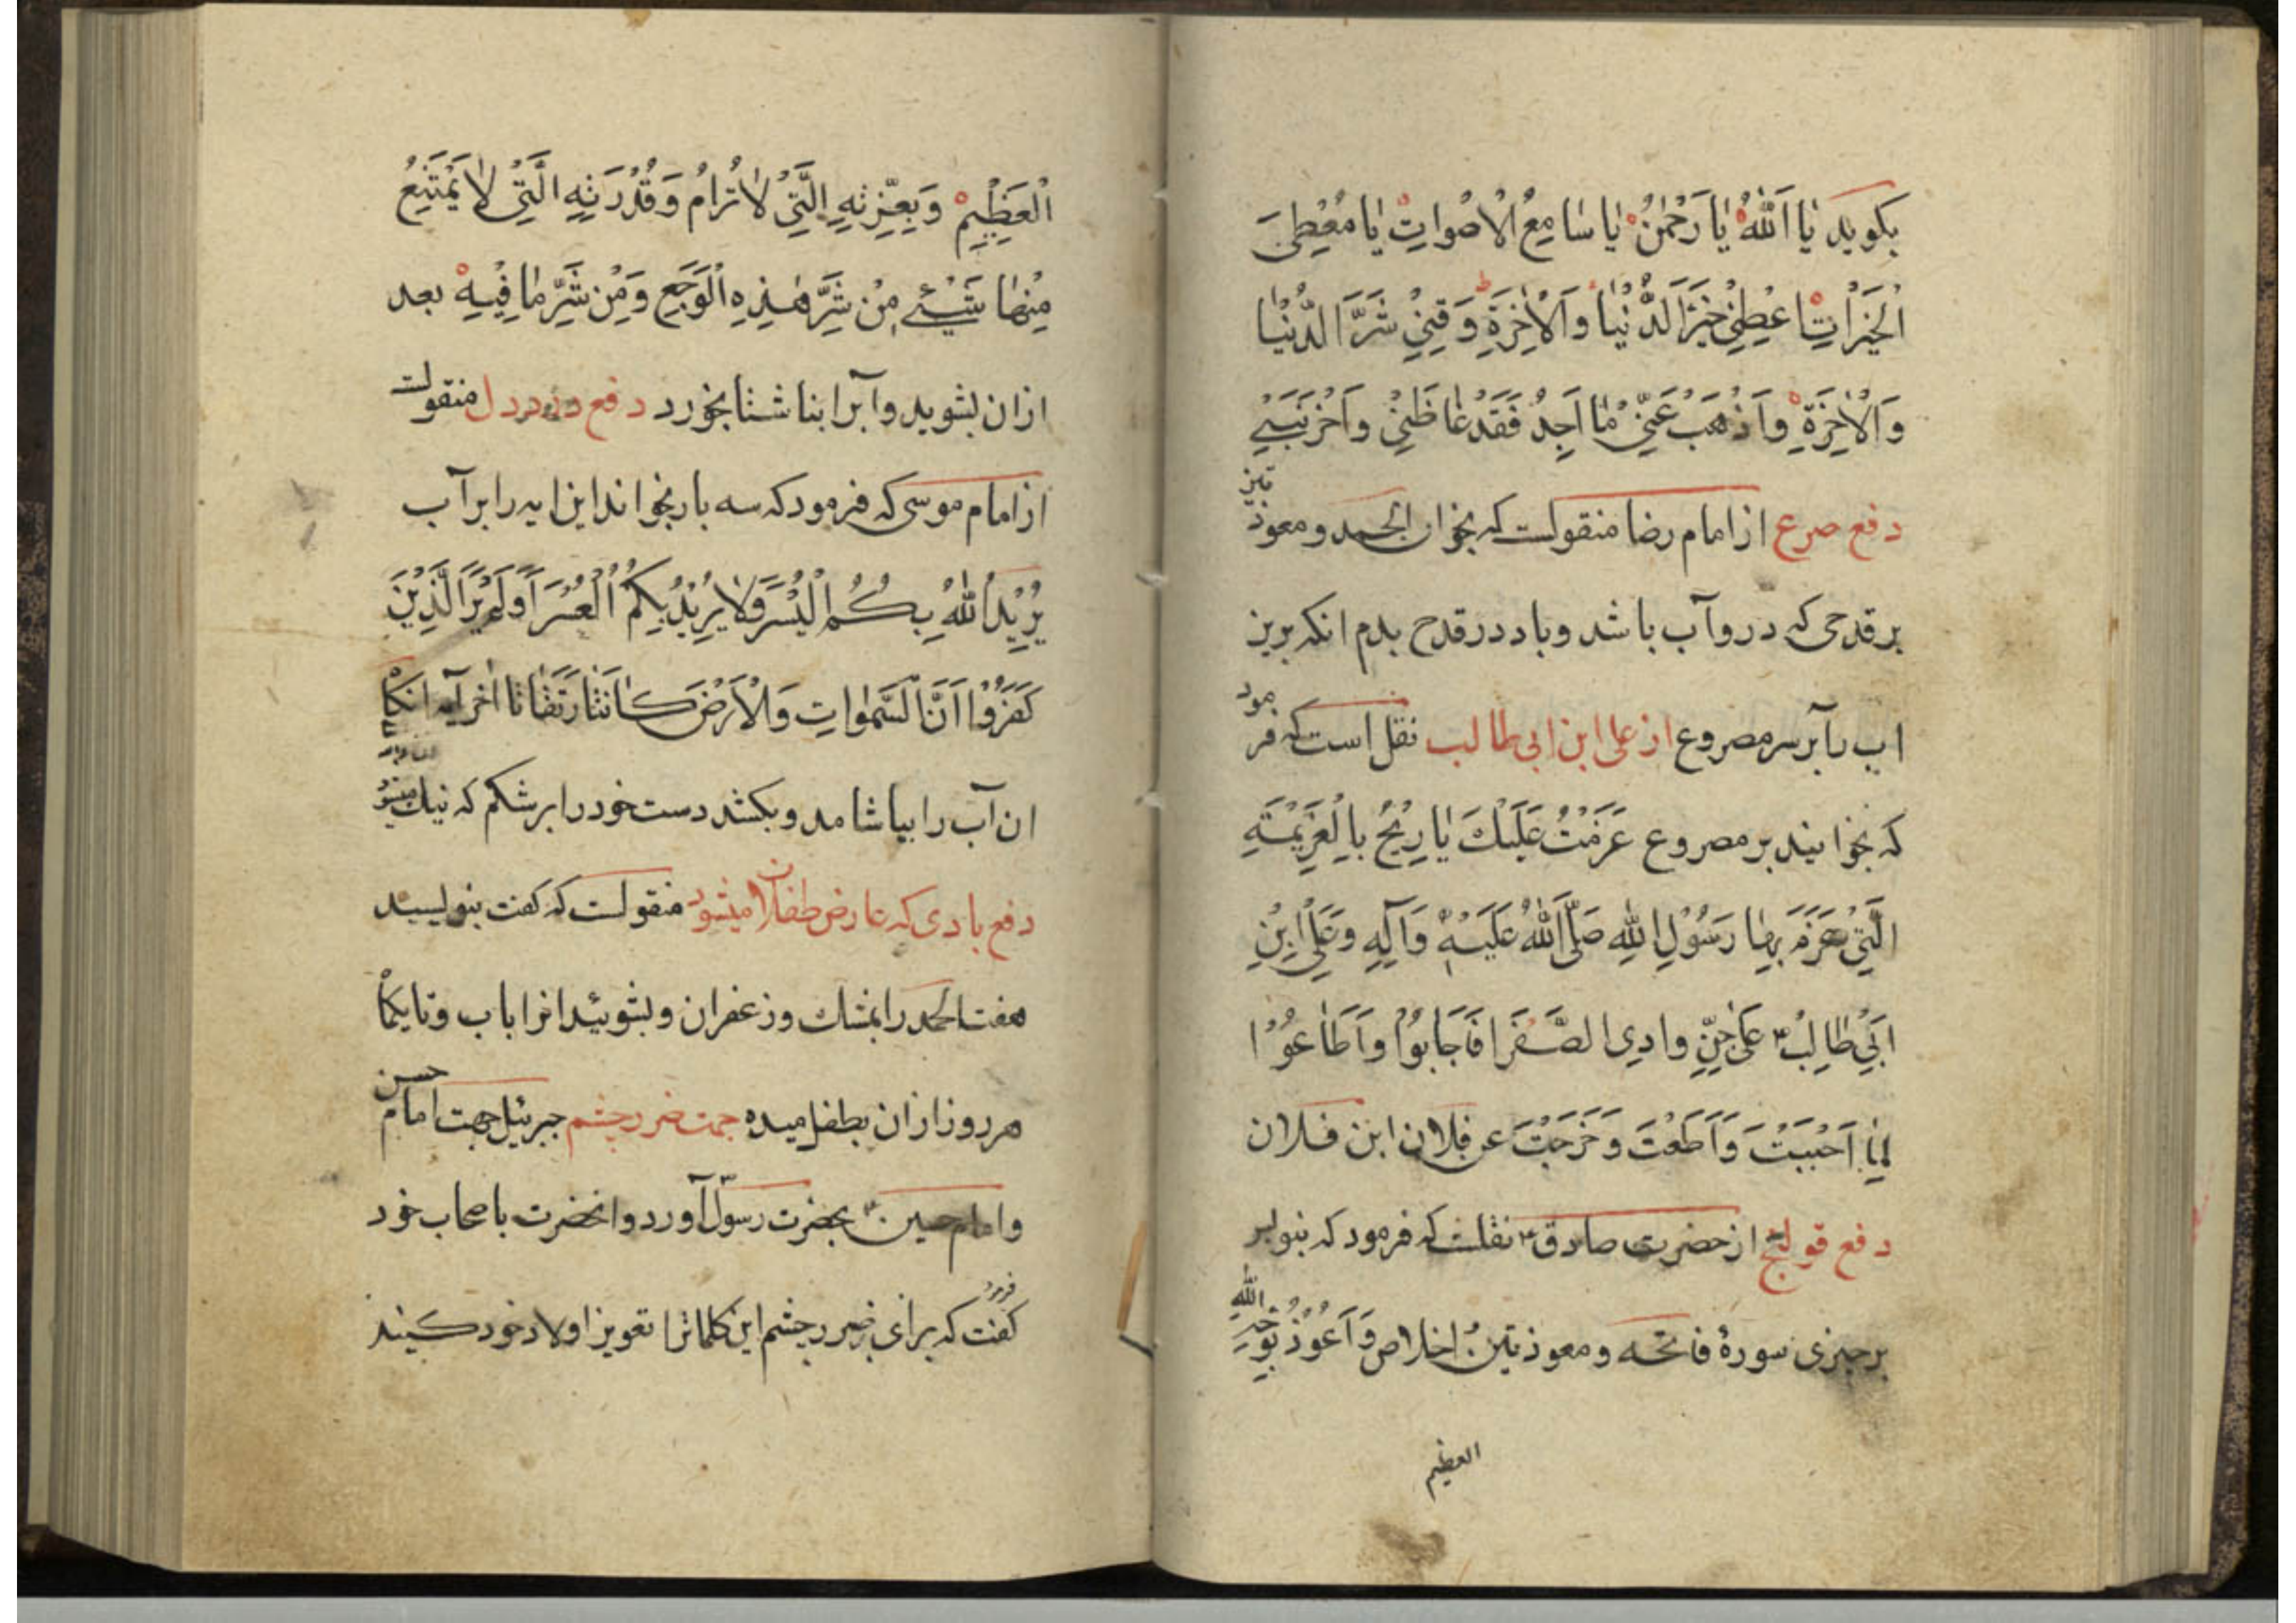 بكويد يٰا اَللّٰهُ يٰا رَحْمٰنُ يٰا سٰامِعُ الْاَصْواتِ يٰا مُعْطِىَ
الْخَيْرٰاتِ اَعْطِنِيْ خَيْرَ الدُّنْيٰا وَالْاٰخِرَةِ وَقِنِيْ شَرَّ الدُّنْيٰا
وَالْاٰخِرَةِ وَاَذْهِبْ عَنِّيْ مٰا اَجِدُ فَقَدْ غٰاظَنِيْ وَاَحْزَنَنِيْ
دفع صرع از امام رضا منقولست كه بخوان الحمد و معوذتين
بر قدحى كه در و آب باشد و باد در قدح بدم انكه بريز
اب را بر سر مصروع از على ابن ابى طالب نقل است كه فرمود
كه بخوانيد بر مصروع عَزَمْتُ عَلَيْكَ يٰا رِيْحُ بِالْعَزِيْمَةِ
الَّتِيْ عَزَمَ بِهٰا رَسُوْلُ اللّٰهِ صَلَّى اللّٰهُ عَلَيْهِ وَآلِهِ وَعَلِيِّ ابْنِ
اَبِيْ طٰالِبْ عَلىٰ جِنِّ وادِى الصَّفَرا فَاَجَابُوْا وَاَطَاعُوْا
لِمٰا اَحْبَبْتَ وَاَطَعْتَ وَخَرَجْتَ عن فلان ابن فلان
دفع قولنج از حضرت صادق نقلست كه فرمود كه بنويس
بر چيزى سورهٔ فاتحه و معوذتين اخلاص وَاَعُوْذُ بِوَجْهِ اللّٰهِ
العظيم
الْعَظِيْمِ وَبِعِزَّتِهِ الَّتِيْ لٰا تُرٰامُ وَقُدْرَتِهِ الَّتِيْ لٰا يَمْتَنِعُ
مِنْهٰا شَيْئٌ مِنْ شَرِّ هٰذِهِ الْوَجَعِ وَمِنْ شَرِّ مٰا فِيْهِ بعد
ازان بشويد و آنرا بناشتا بخورد دفع درد دل منقولست
از امام موسى كه فرمود كه سه بار بخواند اين ايه را بر آب
يُرِيْدُ اللّٰهُ بِكُمُ الْيُسْرَ وَلٰا يُرِيْدُ بِكُمُ الْعُسْرَ اَوَلَمْ يَرَ الَّذِيْنَ
كَفَرُوْا اَنَّ السَّمٰواتِ وَالْاَرْضَ كٰانَتٰا رَتَقًا تا اخر آيه انكاه
ان آب را بياشامد و بكشد دست خود را بر شكم كه نيك ميشود
دفع بادى كه عارض طفلان ميشود منقولست كه كفت بنويسيد
هفت الحمد را بمشك و زعفران و بشوئيد انرا باب و تا يكماه
هر روز ازان بطفل ميده جهت ضرر چشم جبرئيل جهت امام حسن
و امام حسين بحضرت رسول آورد و انحضرت باصحاب خود
كفت كه براى ضرر چشم اين كلماترا تعويز اولاد خود كنيد